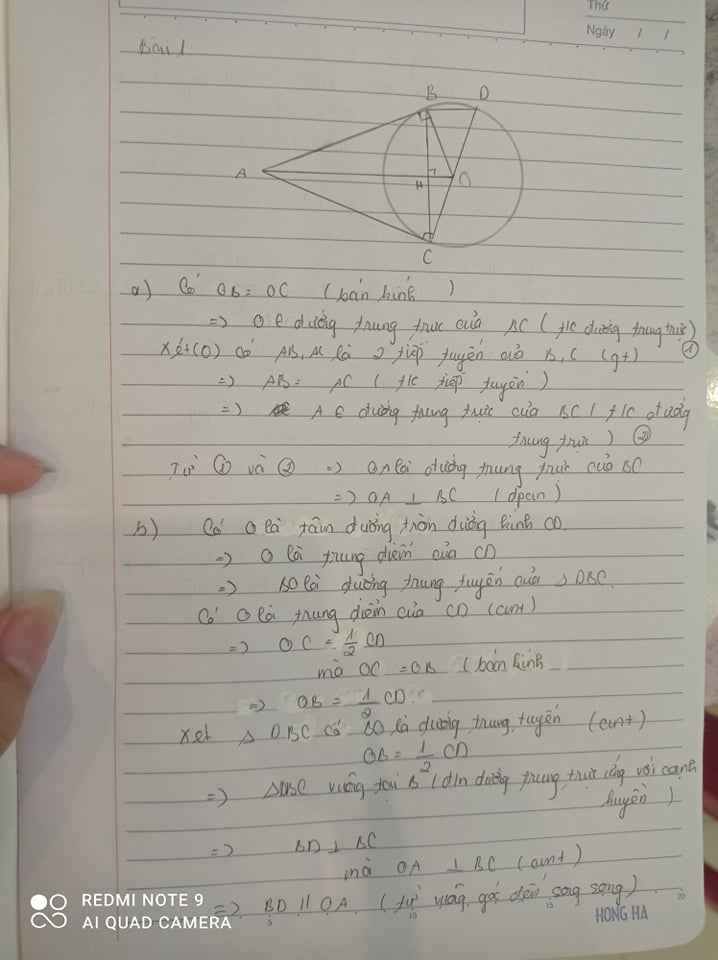 Thứ
Ngày / /
Bài 1
B D
A H O
C
a) Có OB = OC (bán kính )
=> O ∈ đường trung trực của BC ( t/c đường trung trực) ①
Xét (O) có AB, AC là 2 tiếp tuyến của B, C (gt)
=> AB = AC ( t/c tiếp tuyến )
=> A ∈ đường trung trực của BC ( t/c đường
trung trực ) ②
Từ ① và ② => OA là đường trung trực của BC
=> OA ⊥ BC (đpcm)
b) Có O là tâm đường tròn đường kính CD
=> O là trung điểm của CD
=> BO là đường trung tuyến của △ DBC.
Có O là trung điểm của CD (cmt)
=> OC = 1/2 CD
mà OC = OB (bán kính
=> OB = 1/2 CD
Xét △ DBC có BO là đường trung tuyến (cmt)
OB = 1/2 CD
=> △DBC vuông tại B (đ/n đường trung trực ứng với cạnh
huyền )
=> BD ⊥ BC
mà OA ⊥ BC (cmt)
=> BD // OA (từ vuông góc đến song song)
5 10 15 20
HONG HA
REDMI NOTE 9
AI QUAD CAMERA